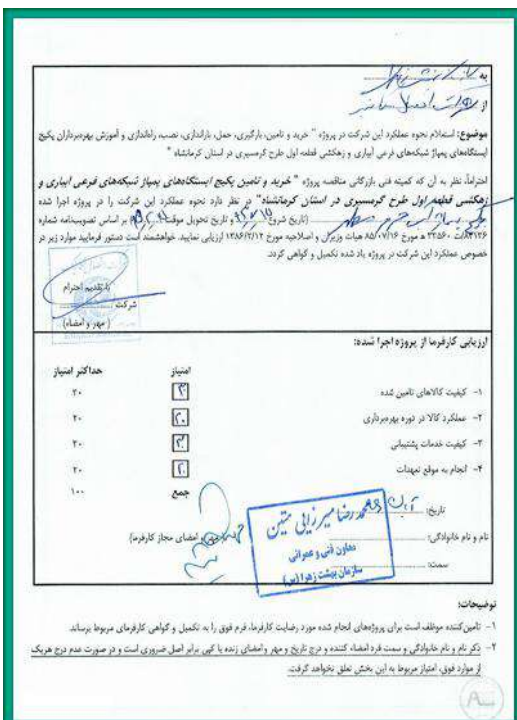 به
از
موضوع: استعلام نحوه عملکرد این شرکت در پروژه " خرید و تامین، بارگیری، حمل، باراندازی، نصب، راه‌اندازی و آموزش بهره‌برداران پکیج
ایستگاههای پمپاژ شبکه‌های فرعی آبیاری و زهکشی قطعه اول طرح گرمسیری در استان کرمانشاه "
احتراماً، نظر به آن که کمیته فنی بازرگانی مناقصه پروژه " خرید و تامین پکیج ایستگاههای پمپاژ شبکه‌های فرعی آبیاری و
زهکشی قطعه اول طرح گرمسیری در استان کرمانشاه" در نظر دارد نحوه عملکرد این شرکت را در پروژه اجرا شده
(تاریخ شروع و تاریخ تحویل موقت بر اساس تصویب‌نامه شماره
ت ۳۳۵۶۰ ه مورخ ۸۵/۰۷/۱۶ هیات وزیران و اصلاحیه مورخ ۱۳۸۶/۲/۱۲ ارزیابی نمایید. خواهشمند است دستور فرمایید موارد زیر در
خصوص عملکرد این شرکت در پروژه یاد شده تکمیل و گواهی گردد.
با تقدیم احترام
شرکت
( مهر و امضاء)
ارزیابی کارفرما از پروژه اجرا شده:
امتیاز حداکثر امتیاز
۱- کیفیت کالاهای تامین شده ۳۰
۲- عملکرد کالا در دوره بهره‌برداری ۲۰ ۲۰
۳- کیفیت خدمات پشتیبانی ۳۰
۴- انجام به موقع تعهدات ۲۰ ۲۰
جمع ۱۰۰
تاریخ:
نام و نام خانوادگی: امضای مجاز کارفرما)
سمت:
محمدرضا میرزایی متین
معاون فنی و عمرانی
سازمان بهشت زهرا (س)
توضیحات:
۱- تامین‌کننده موظف است برای پروژه‌های انجام شده مورد رضایت کارفرما، فرم فوق را به تکمیل و گواهی کارفرمای مربوط برساند.
۲- ذکر نام و نام خانوادگی و سمت فرد امضاء کننده و درج تاریخ و مهر و امضای زنده یا کپی برابر اصل ضروری است و در صورت عدم درج هریک
از موارد فوق، امتیاز مربوط به این بخش تعلق نخواهد گرفت.